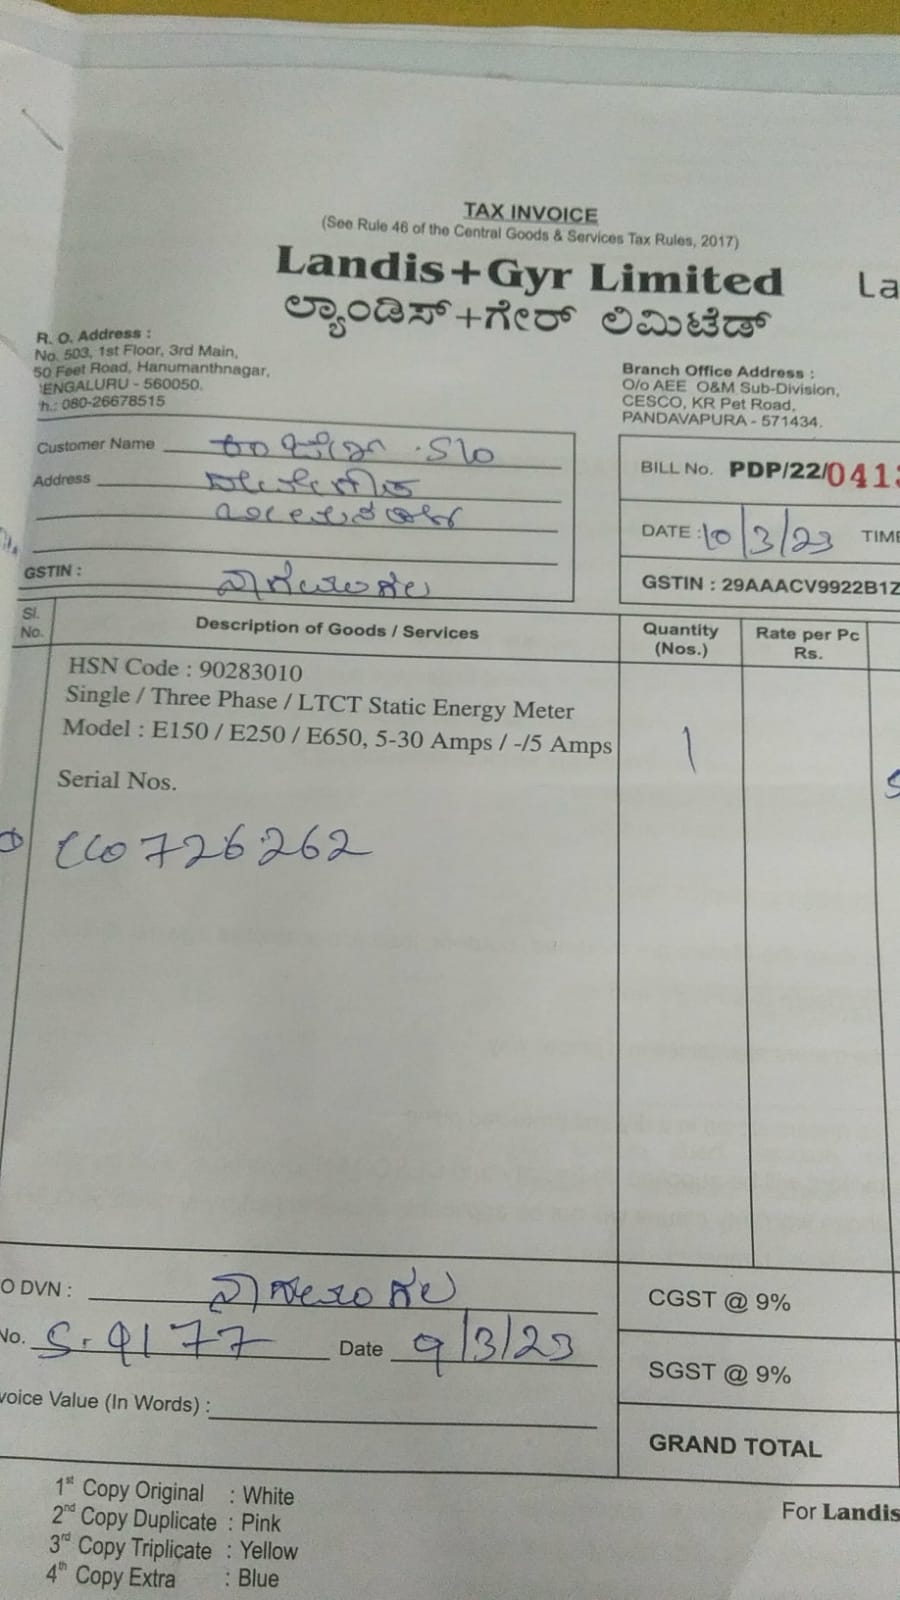 TAX INVOICE
(See Rule 46 of the Central Goods & Services Tax Rules, 2017)
Landis+Gyr Limited
La
ಲ್ಯಾಂಡಿಸ್+ಗೇರ್ ಲಿಮಿಟೆಡ್
R. O. Address :
No. 503, 1st Floor, 3rd Main,
50 Feet Road, Hanumanthnagar,
ENGALURU - 560050.
h.: 080-26678515
Branch Office Address :
O/o AEE O&M Sub-Division,
CESCO, KR Pet Road,
PANDAVAPURA - 571434.
Customer Name
Address
GSTIN : ನಾಗಮಂಗಲ
BILL No. PDP/22/0413
DATE : 10/3/23 TIME
GSTIN : 29AAACV9922B1Z
Sl. No. Description of Goods / Services Quantity (Nos.) Rate per Pc Rs.
HSN Code : 90283010
Single / Three Phase / LTCT Static Energy Meter
Model : E150 / E250 / E650, 5-30 Amps / -/5 Amps 1
Serial Nos.
726262
O DVN : ನಾಗಮಂಗಲ
No. S-9177 Date 9/3/23
voice Value (In Words) :
CGST @ 9%
SGST @ 9%
GRAND TOTAL
1st Copy Original : White
2nd Copy Duplicate : Pink
3rd Copy Triplicate : Yellow
4th Copy Extra : Blue
For Landis